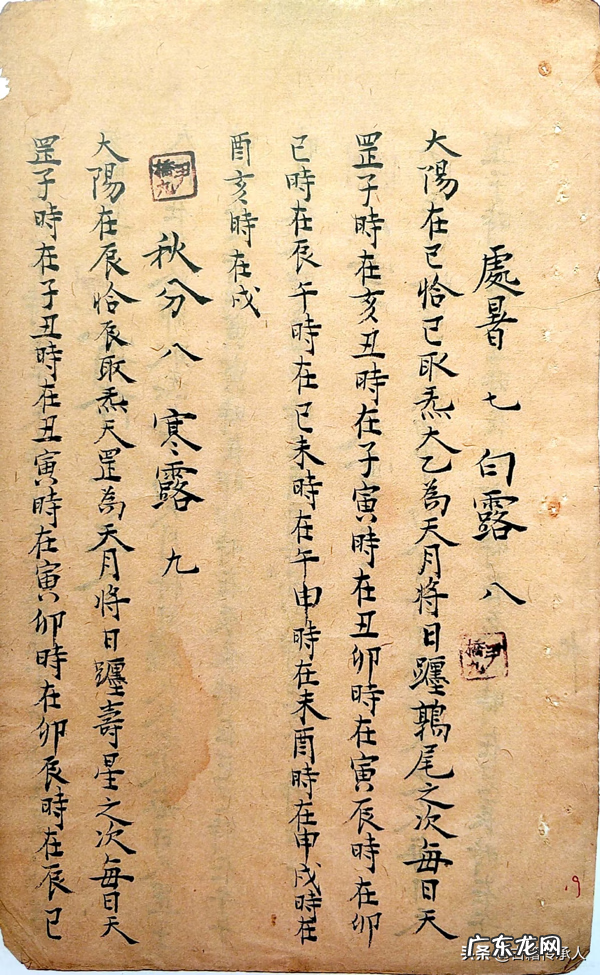 處暑 七 白露 八
大陽在巳恰巳取炁太乙為天月將日躔鶉尾之次每日天
罡子時在亥丑時在子寅時在丑卯時在寅辰時在卯
巳時在辰午時在巳未時在午申時在未酉時在申戌時在
酉亥時在戌
秋分 八 寒露 九
大陽在辰恰辰取炁天罡為天月將日躔壽星之次每日天
罡子時在子丑時在丑寅時在寅卯時在卯辰時在辰巳
9
头条 @古籍传承人
广东龙网